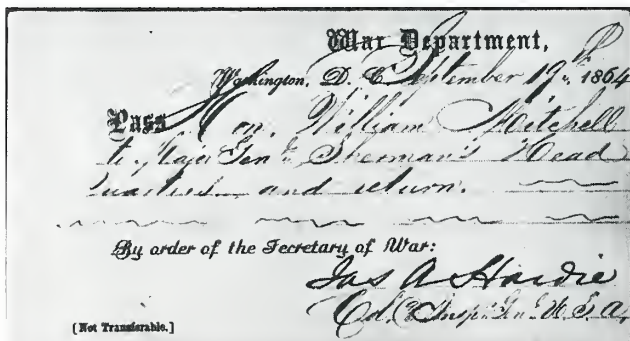 War Department,
Washington, D. C. September 19th 1864
Pass Hon. William Mitchell
to Major Genl Sherman's Head
Quarters and return.
By order of the Secretary of War:
Jas A Hardie
Col. & Insp. Gen. U. S. A.
[Not Transferable.]